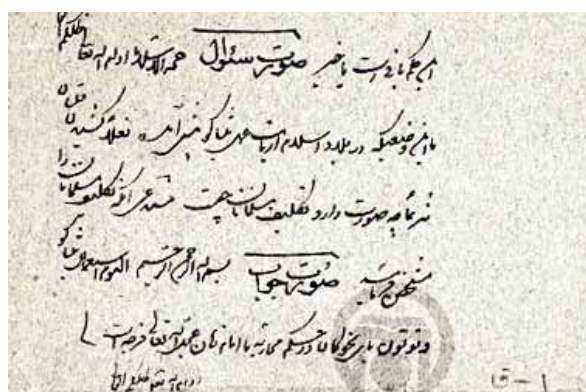 این حکم باقی است یا خیر صورت سئوال حجةالاسلاما ادام اله تعالی ظلکم
بااین وضعیکه در بلاد اسلام از بابت عمل تنباکو پیش آمده فعلاً کشیدن قلیان
شرعاً چه صورت دارد و تکلیف مسلمانان چیست مستدعی آنکه تکلیف مسلمانان را
مشخص فرمائید صورت جواب بسم اله الرحمن الرحیم الیوم استعمال تنباکو
و توتون بای نحو کان در حکم محاربه با امام زمان عجل اله تعالی فرجه است